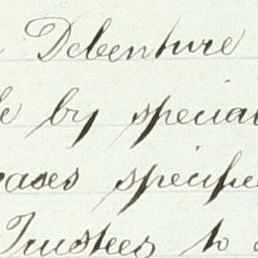 Debenture
by special
cases specifie
Trustees to